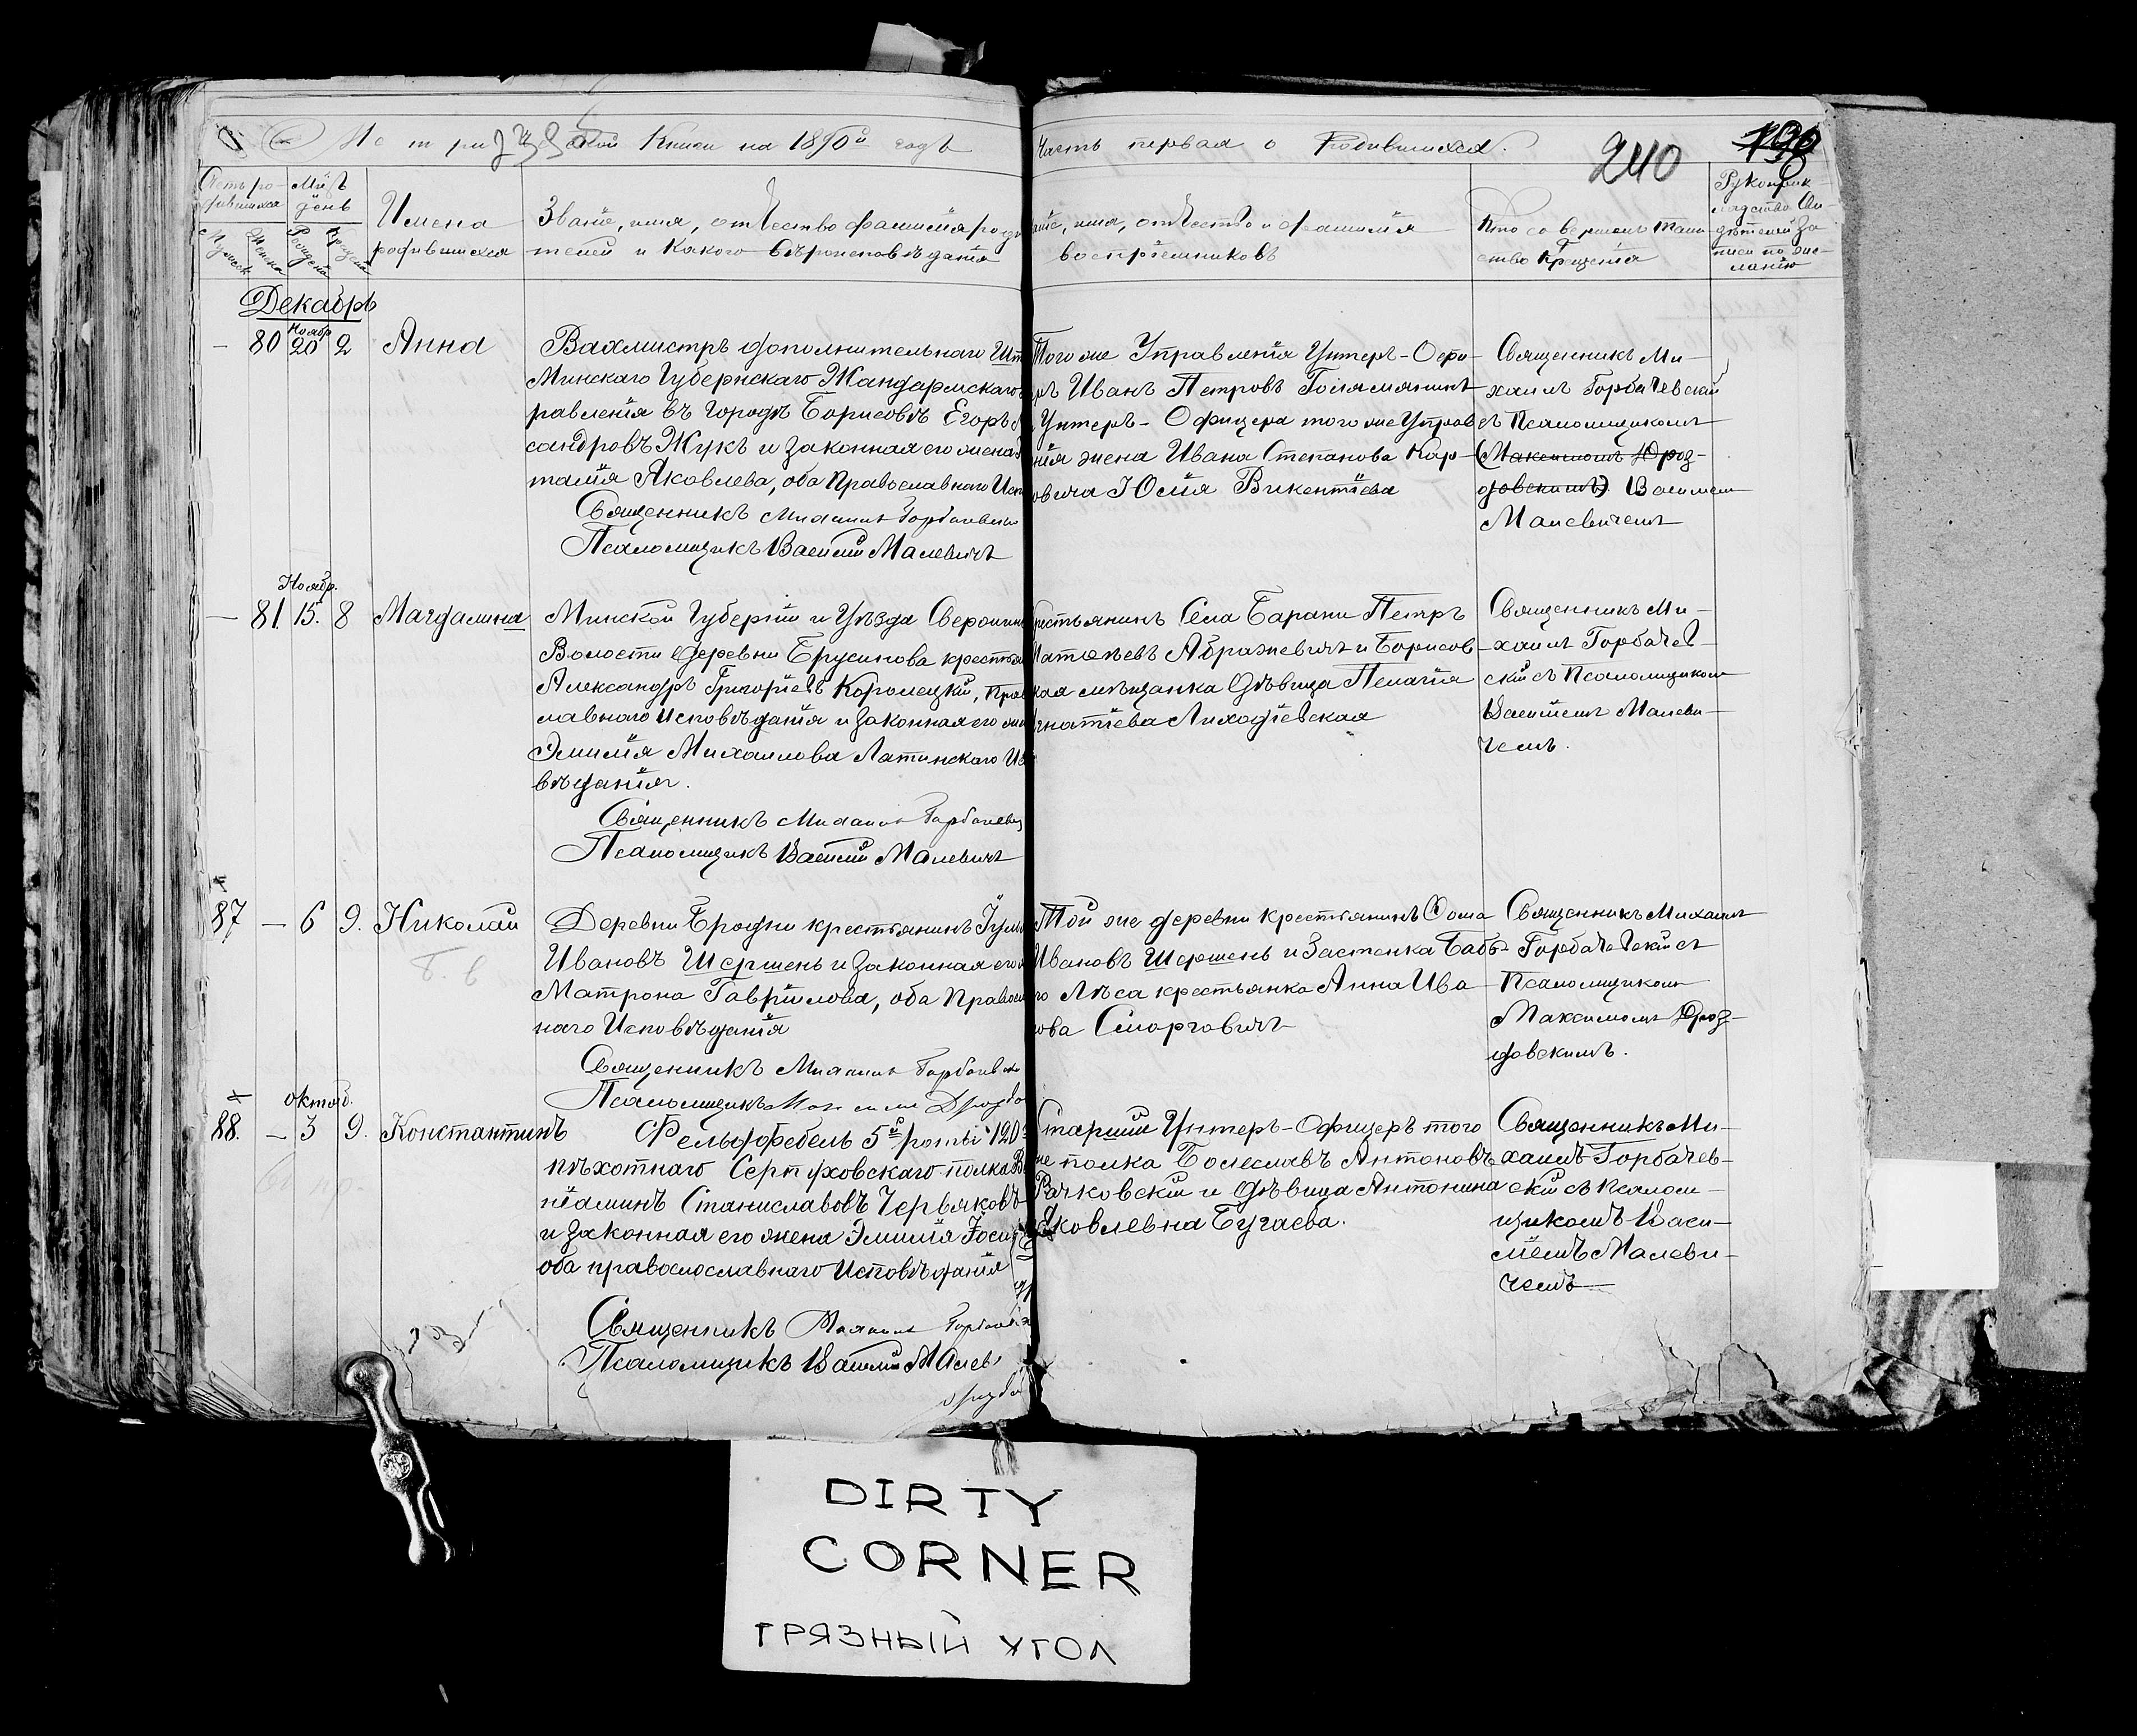 Метрической Книги на 1890й годъ
Часть первая о Родившихся.
240
190
Мсцъ
день
Имена
родившихся
Званіе, имя, отчество фамилія роди
телей и какого вѣроисповѣданія
имя, отчество и фамилія
воспріемниковъ
Кто совершилъ таин
ство Крещенія
Рукоприк
Декабрь
80 Ноябр 20 2 Анна
Вахмистръ дополнительнаго Шт
Минскаго Губернскаго Жандармскаго
равленія въ городѣ Борисовѣ Егоръ
сандровъ Жукъ и законная его жена
талія Яковлева, оба Православнаго Исп
Священникъ Михаилъ
Псаломщикъ Василій Малевичъ
Того же Управленія Унтеръ-Офи-
Иванъ Петровъ
Унтеръ-Офицера того же Управле
нія жена Ивана Степанова Кар-
овича Юлія Викентіева
Священникъ Ми-
хаилъ Горбачевскій
съ Псаломщикомъ
(Максимомъ Дроз-
довскимъ) Василіем
Малевичемъ
Ноябр.
81. 15. 8 Магдалина
Минской Губерніи и Уѣзда
Волости деревни Брусинова крестья
Александръ Григорьевъ Королецкій, Прав
славнаго Исповѣданія и законная его
Эмилія Михайлова Латинскаго Ис
вѣданія.
Священникъ Михаилъ
Псаломщикъ Василій Малевичъ
рестьянинъ Села Барани Петръ
Матѳѣевъ Абражевичъ и Борисов-
кая мѣщанка дѣвица Пелагія
гнатіева Лиходіевская
Священникъ Ми-
хаилъ Горбачев-
скій съ Псаломщиком
Василіемъ Малеви-
чемъ.
87 — 6 9. Николай
Деревни Бродни крестьянинъ
Ивановъ Шершень и законная его
Матрона Гавріилова, оба Правосл
наго Исповѣданія
Священникъ Михаилъ
Псаломщикъ
Той же деревни крестьянинъ Ѳома
Ивановъ Шершень и Застенка Бабь-
го Лѣса крестьянка Анна Ива
нова Сморговичъ
Священникъ Михаилъ
Горбачевскій съ
Псаломщикомъ
Максимомъ Дроз-
довскимъ.
Октяб.
88. — 3 9. Константинъ
Фельдфебель 5й роты 120
пѣхотнаго Серпуховскаго полка Ве
ніаминъ Станиславовъ Червяковъ
и законная его жена Эмилія
оба правослославнаго Исповѣданія
Священникъ Михаилъ
Псаломщикъ Василій Малев
Старшій Унтеръ-Офицеръ того
же полка Болеславъ Антоновъ
Рачковскій и дѣвица Антонина
Яковлевна Бугаева.
Священникъ Ми-
хаилъ Горбачев-
скій съ псалом-
щикомъ Васи-
ліемъ Малеви-
чемъ
DIRTY
CORNER
ГРЯЗНЫЙ УГОЛ